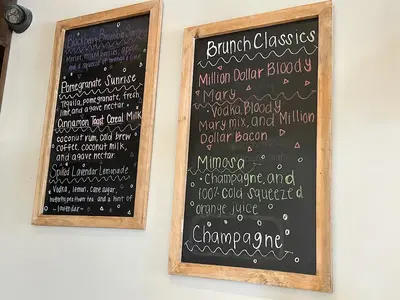 Blackberry Bramble
berries, apple,
and a squeeze of orange
Pomegranate Sunrise
Tequila, pomegranate, fresh
lime and agave nectar
Cinnamon Toast Cereal Milk
coconut rum, cold brew
coffee, coconut milk,
and agave nectar.
Spiked Lavender Lemonade
Vodka, lemon, cane sugar,
butterfly pea flower tea and a hint of
lavender
Brunch Classics
Million Dollar Bloody
Mary
Vodka, Bloody
Mary mix, and Million
Dollar Bacon
Mimosa
- Champagne, and
100% cold squeezed
orange juice
Champagne